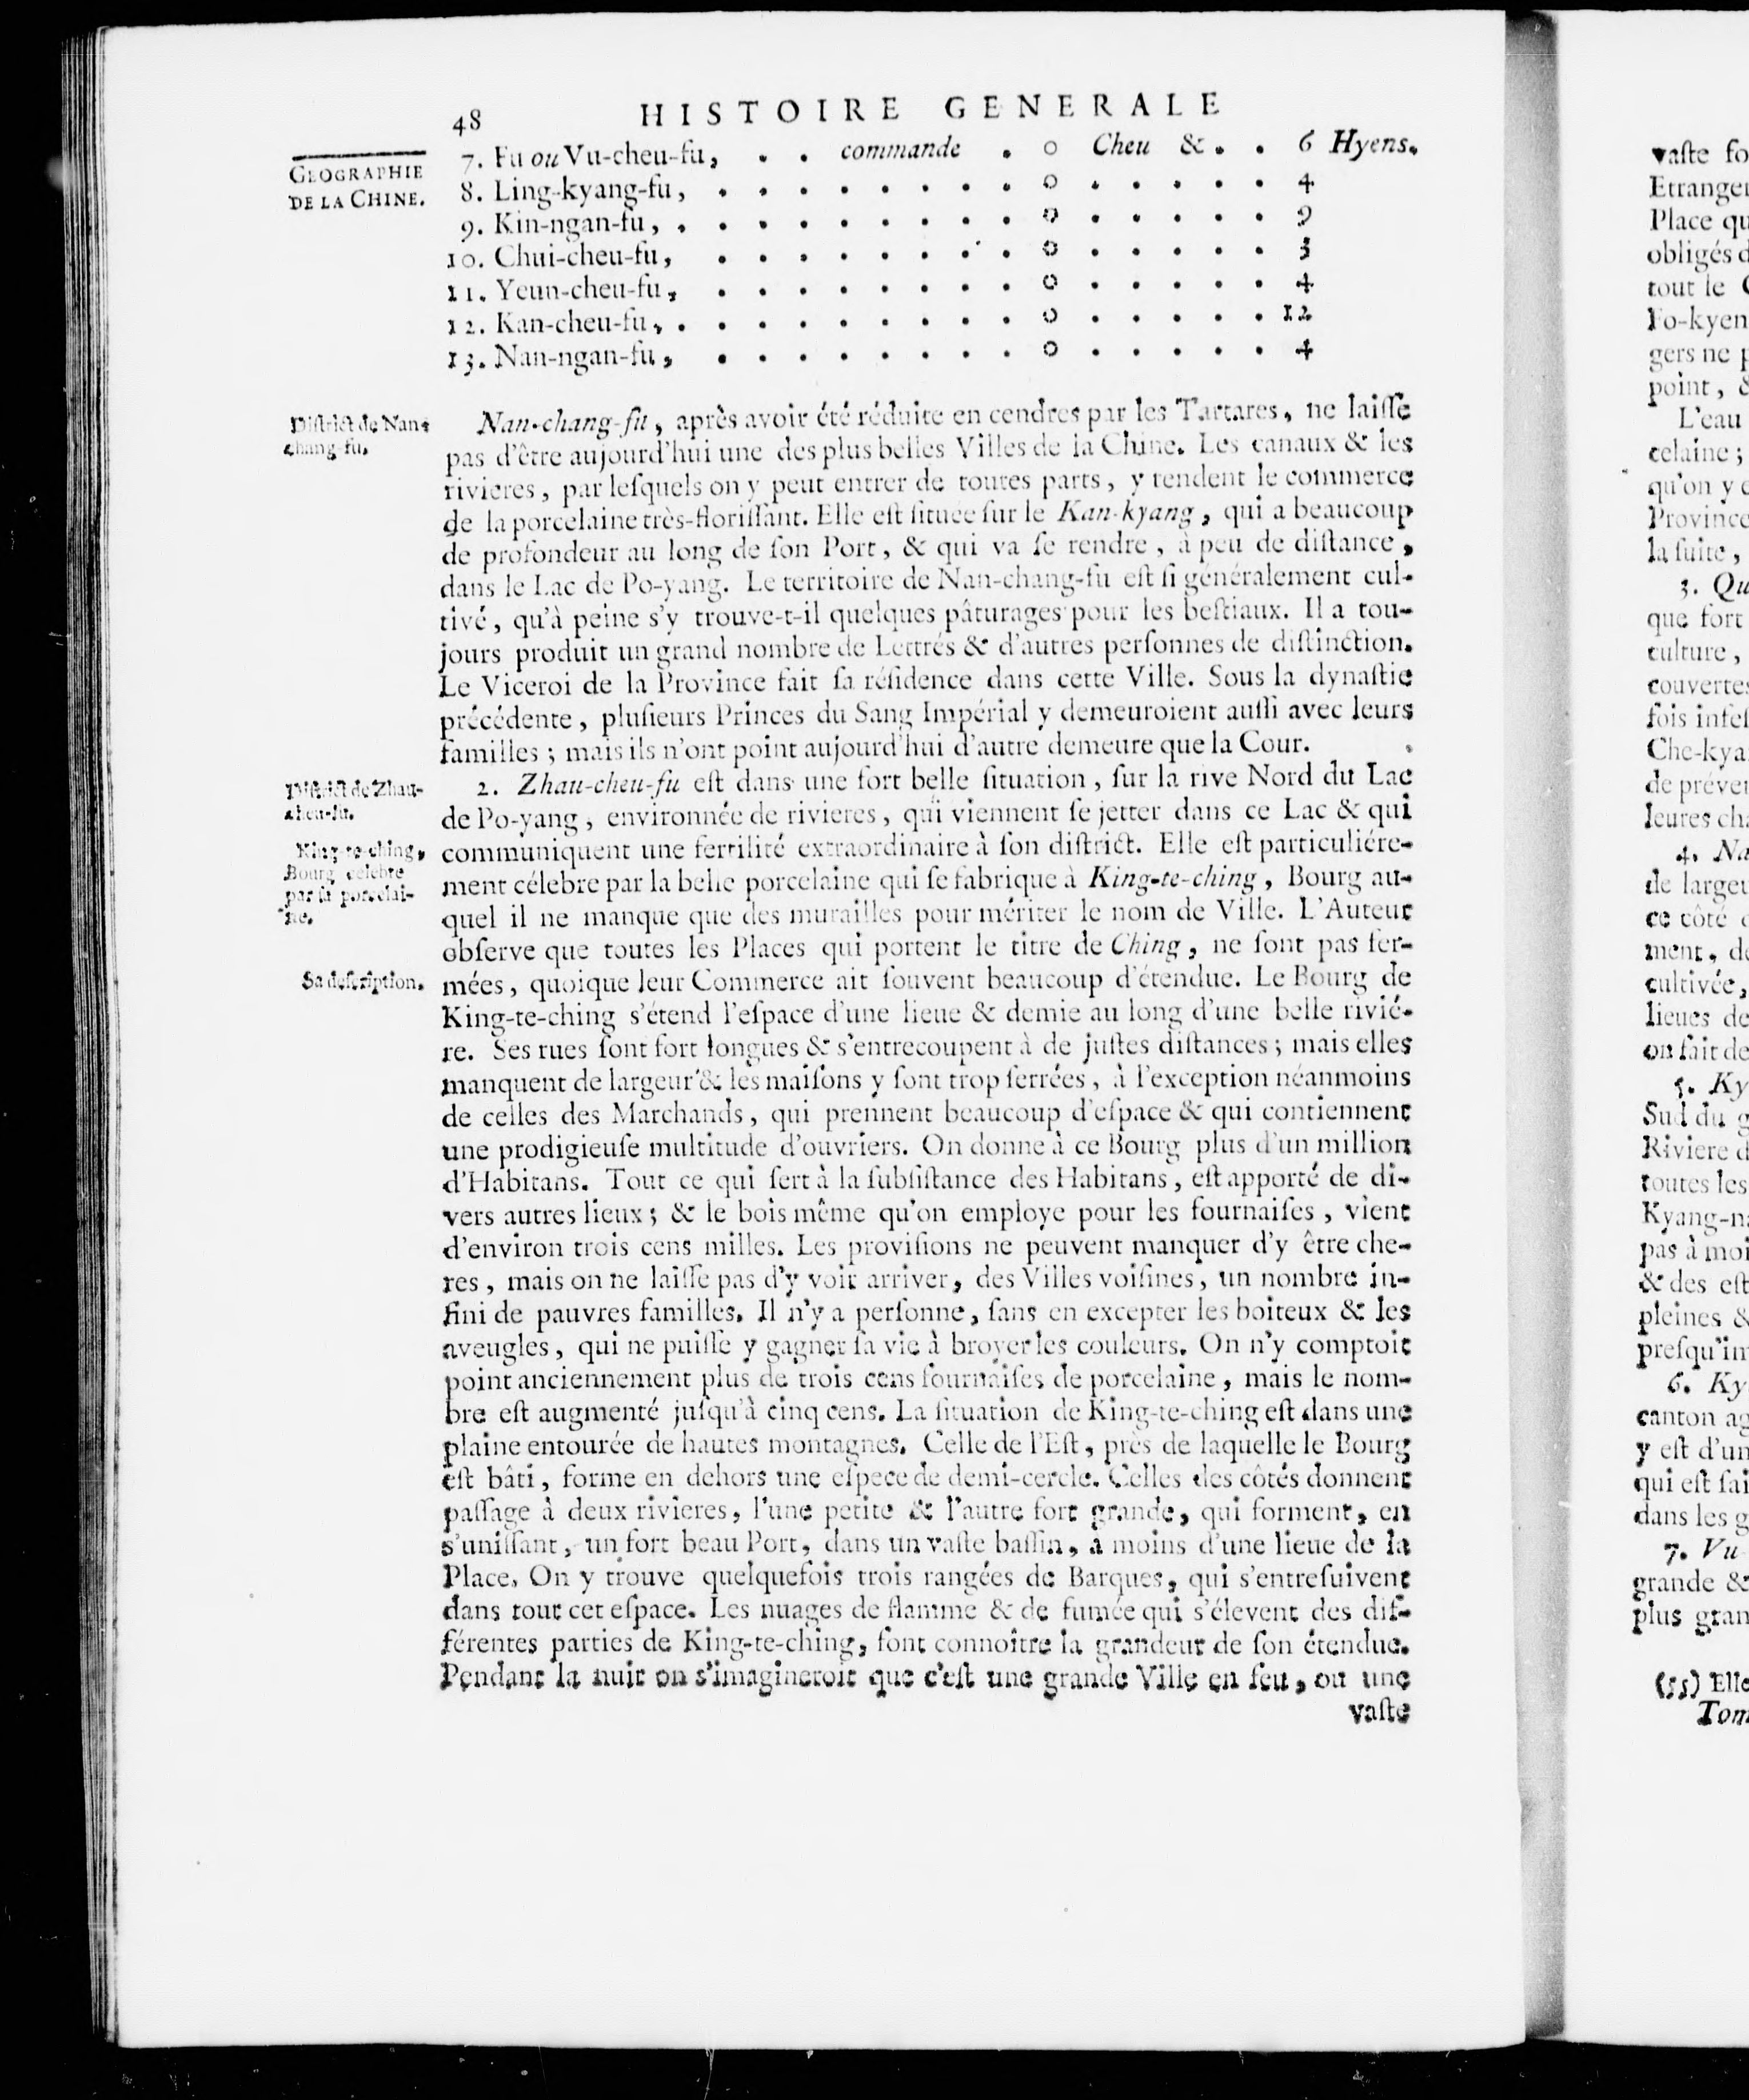 48 HISTOIRE GENERALE
GEOGRAPHIE
DE LA CHINE.
7. Fu ou Vu-cheu-fu, . . commande . o Cheu &. . 6 Hyens.
8. Ling-kyang-fu, . . . . . . . . o . . . . . 4
9. Kin-ngan-fu, . . . . . . . . . o . . . . . 9
10. Chui-cheu-fu, . . . . . . . . o . . . . . 3
11. Yeun-cheu-fu, . . . . . . . . o . . . . . 4
12. Kan-cheu-fu, . . . . . . . . . o . . . . . 12
13. Nan-ngan-fu, . . . . . . . . o . . . . . 4
District de Nan-
chang-fu.
Nan-chang-fu, après avoir été réduite en cendres par les Tartares, ne laiſſe
pas d'être aujourd'hui une des plus belles Villes de la Chine. Les canaux & les
rivieres, par leſquels on y peut entrer de toutes parts, y rendent le commerce
de la porcelaine très-floriſſant. Elle eſt ſituée ſur le Kan-kyang, qui a beaucoup
de profondeur au long de ſon Port, & qui va ſe rendre, à peu de diſtance,
dans le Lac de Po-yang. Le territoire de Nan-chang-fu eſt ſi généralement cul-
tivé, qu'à peine s'y trouve-t-il quelques pâturages pour les beſtiaux. Il a tou-
jours produit un grand nombre de Lettrés & d'autres perſonnes de diſtinction.
Le Viceroi de la Province fait ſa réſidence dans cette Ville. Sous la dynaſtie
précédente, pluſieurs Princes du Sang Impérial y demeuroient auſſi avec leurs
familles; mais ils n'ont point aujourd'hui d'autre demeure que la Cour.
District de Zhau-
cheu-fu.
2. Zhau-cheu-fu eſt dans une fort belle ſituation, ſur la rive Nord du Lac
de Po-yang, environnée de rivieres, qui viennent ſe jetter dans ce Lac & qui
King-te-ching,
Bourg célebre
par ſa porcelai-
ne.
communiquent une fertilité extraordinaire à ſon diſtrict. Elle eſt particuliére-
ment célebre par la belle porcelaine qui ſe fabrique à King-te-ching, Bourg au-
quel il ne manque que des murailles pour mériter le nom de Ville. L'Auteur
obſerve que toutes les Places qui portent le titre de Ching, ne ſont pas fer-
Sa deſcription.
mées, quoique leur Commerce ait ſouvent beaucoup d'étendue. Le Bourg de
King-te-ching s'étend l'eſpace d'une lieue & demie au long d'une belle rivié-
re. Ses rues ſont fort longues & s'entrecoupent à de juſtes diſtances; mais elles
manquent de largeur & les maiſons y ſont trop ſerrées, à l'exception néanmoins
de celles des Marchands, qui prennent beaucoup d'eſpace & qui contiennent
une prodigieuſe multitude d'ouvriers. On donne à ce Bourg plus d'un million
d'Habitans. Tout ce qui ſert à la ſubſiſtance des Habitans, eſt apporté de di-
vers autres lieux; & le bois même qu'on employe pour les fournaiſes, vient
d'environ trois cens milles. Les proviſions ne peuvent manquer d'y être che-
res, mais on ne laiſſe pas d'y voir arriver, des Villes voiſines, un nombre in-
fini de pauvres familles. Il n'y a perſonne, ſans en excepter les boiteux & les
aveugles, qui ne puiſſe y gagner ſa vie à broyer les couleurs. On n'y comptoit
point anciennement plus de trois cens fournaiſes de porcelaine, mais le nom-
bre eſt augmenté juſqu'à cinq cens. La ſituation de King-te-ching eſt dans une
plaine entourée de hautes montagnes. Celle de l'Eſt, près de laquelle le Bourg
eſt bâti, forme en dehors une eſpece de demi-cercle. Celles des côtés donnent
paſſage à deux rivieres, l'une petite & l'autre fort grande, qui forment, en
s'uniſſant, un fort beau Port, dans un vaſte baſſin, à moins d'une lieue de la
Place. On y trouve quelquefois trois rangées de Barques, qui s'entreſuivent
dans tout cet eſpace. Les nuages de flamme & de fumée qui s'élevent des dif-
férentes parties de King-te-ching, font connoître la grandeur de ſon étendue.
Pendant la nuit on s'imagineroit que c'eſt une grande Ville en feu, ou une
vaſte
vaſte fo
Etranger
Place qu
obligés d
tout le
Fo-kyen
gers ne p
point, &
L'eau
celaine;
qu'on y e
Province
la ſuite,
3. Qu
que fort
culture,
couvertes
fois infeſ
Che-kya
de préver
leures cha
4. Na
de largeu
ce côté
ment, de
cultivée,
lieues de
on fait de
5. Ky
Sud du g
Riviere d
toutes les
Kyang-n
pas à moi
& des eſt
pleines &
preſqu'im
6. Ky
canton ag
y eſt d'un
qui eſt fai
dans les g
7. Vu
grande &
plus gran
(55) Elle
Tom